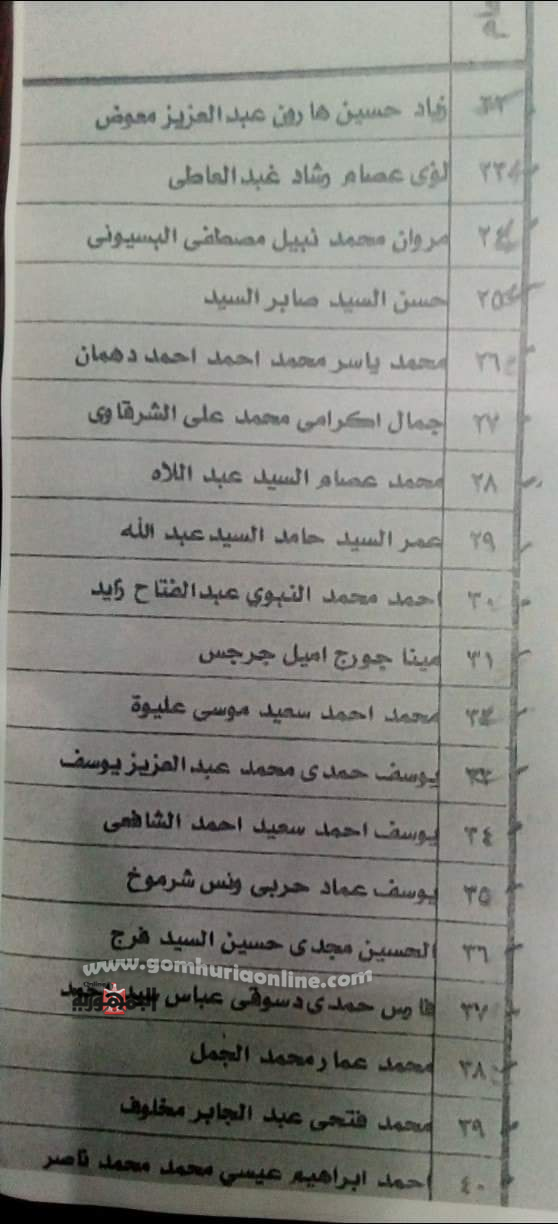 ٢٢ زياد حسين هارون عبدالعزيز معوض
٢٣ لؤى عصام رشاد عبدالعاطى
٢٤ مروان محمد نبيل مصطفى البسيونى
٢٥ حسن السيد صابر السيد
٢٦ محمد ياسر محمد احمد احمد دهمان
٢٧ جمال اكرامى محمد على الشرقاوى
٢٨ محمد عصام السيد عبد اللاه
٢٩ عمر السيد حامد السيد عبد الله
٣٠ احمد محمد النبوي عبدالفتاح زايد
٣١ مينا جورج اميل جرجس
٣٢ محمد احمد سعيد موسى عليوة
٣٣ يوسف حمدى محمد عبدالعزيز يوسف
٣٤ يوسف احمد سعيد احمد الشافعى
٣٥ يوسف عماد حربى ونس شرموخ
٣٦ الحسين مجدى حسين السيد فرج
www.gomhuriaonline.com
٣٧ فارس حمدى دسوقى عباس
الجمهورية
٣٨ محمد عمار محمد الجمل
٣٩ محمد فتحى عبد الجابر مخلوف
٤٠ احمد ابراهيم عيسي محمد محمد ناصر